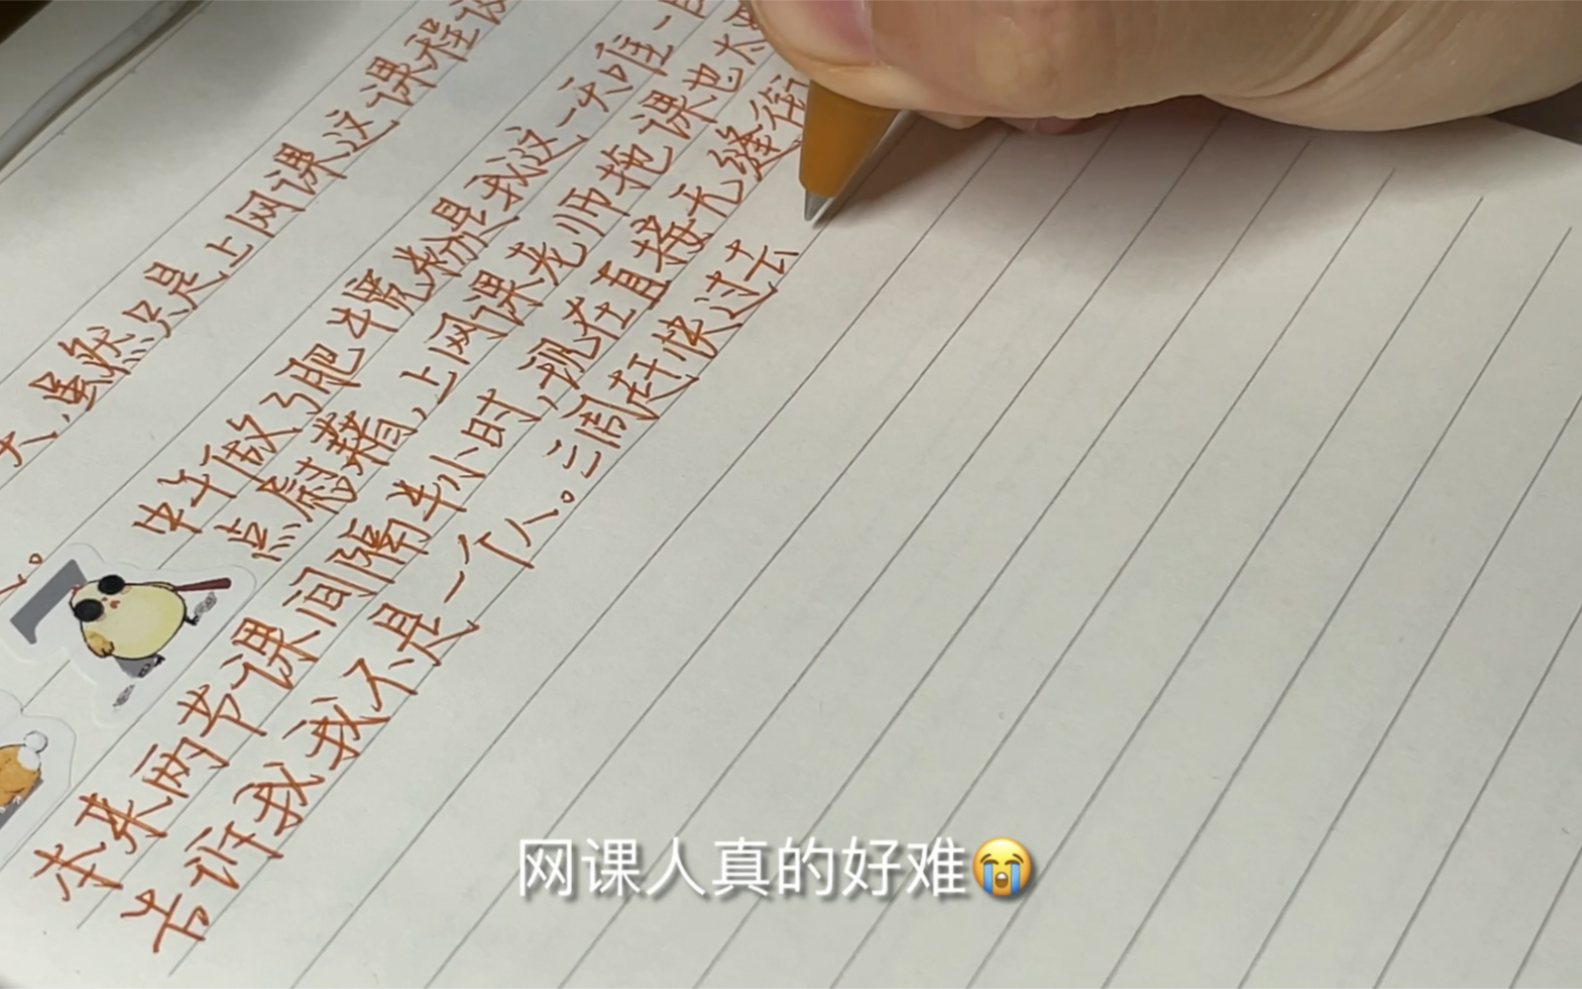 天、虽然只是上网课这课程设
中午做了肥牛嫩粉是我这一天唯一
点慰藉,上网课老师拖课也太
本来两节课间隔半小时,现在直接无缝衔
告诉我我不是一个人。三周赶快过去
网课人真的好难😭